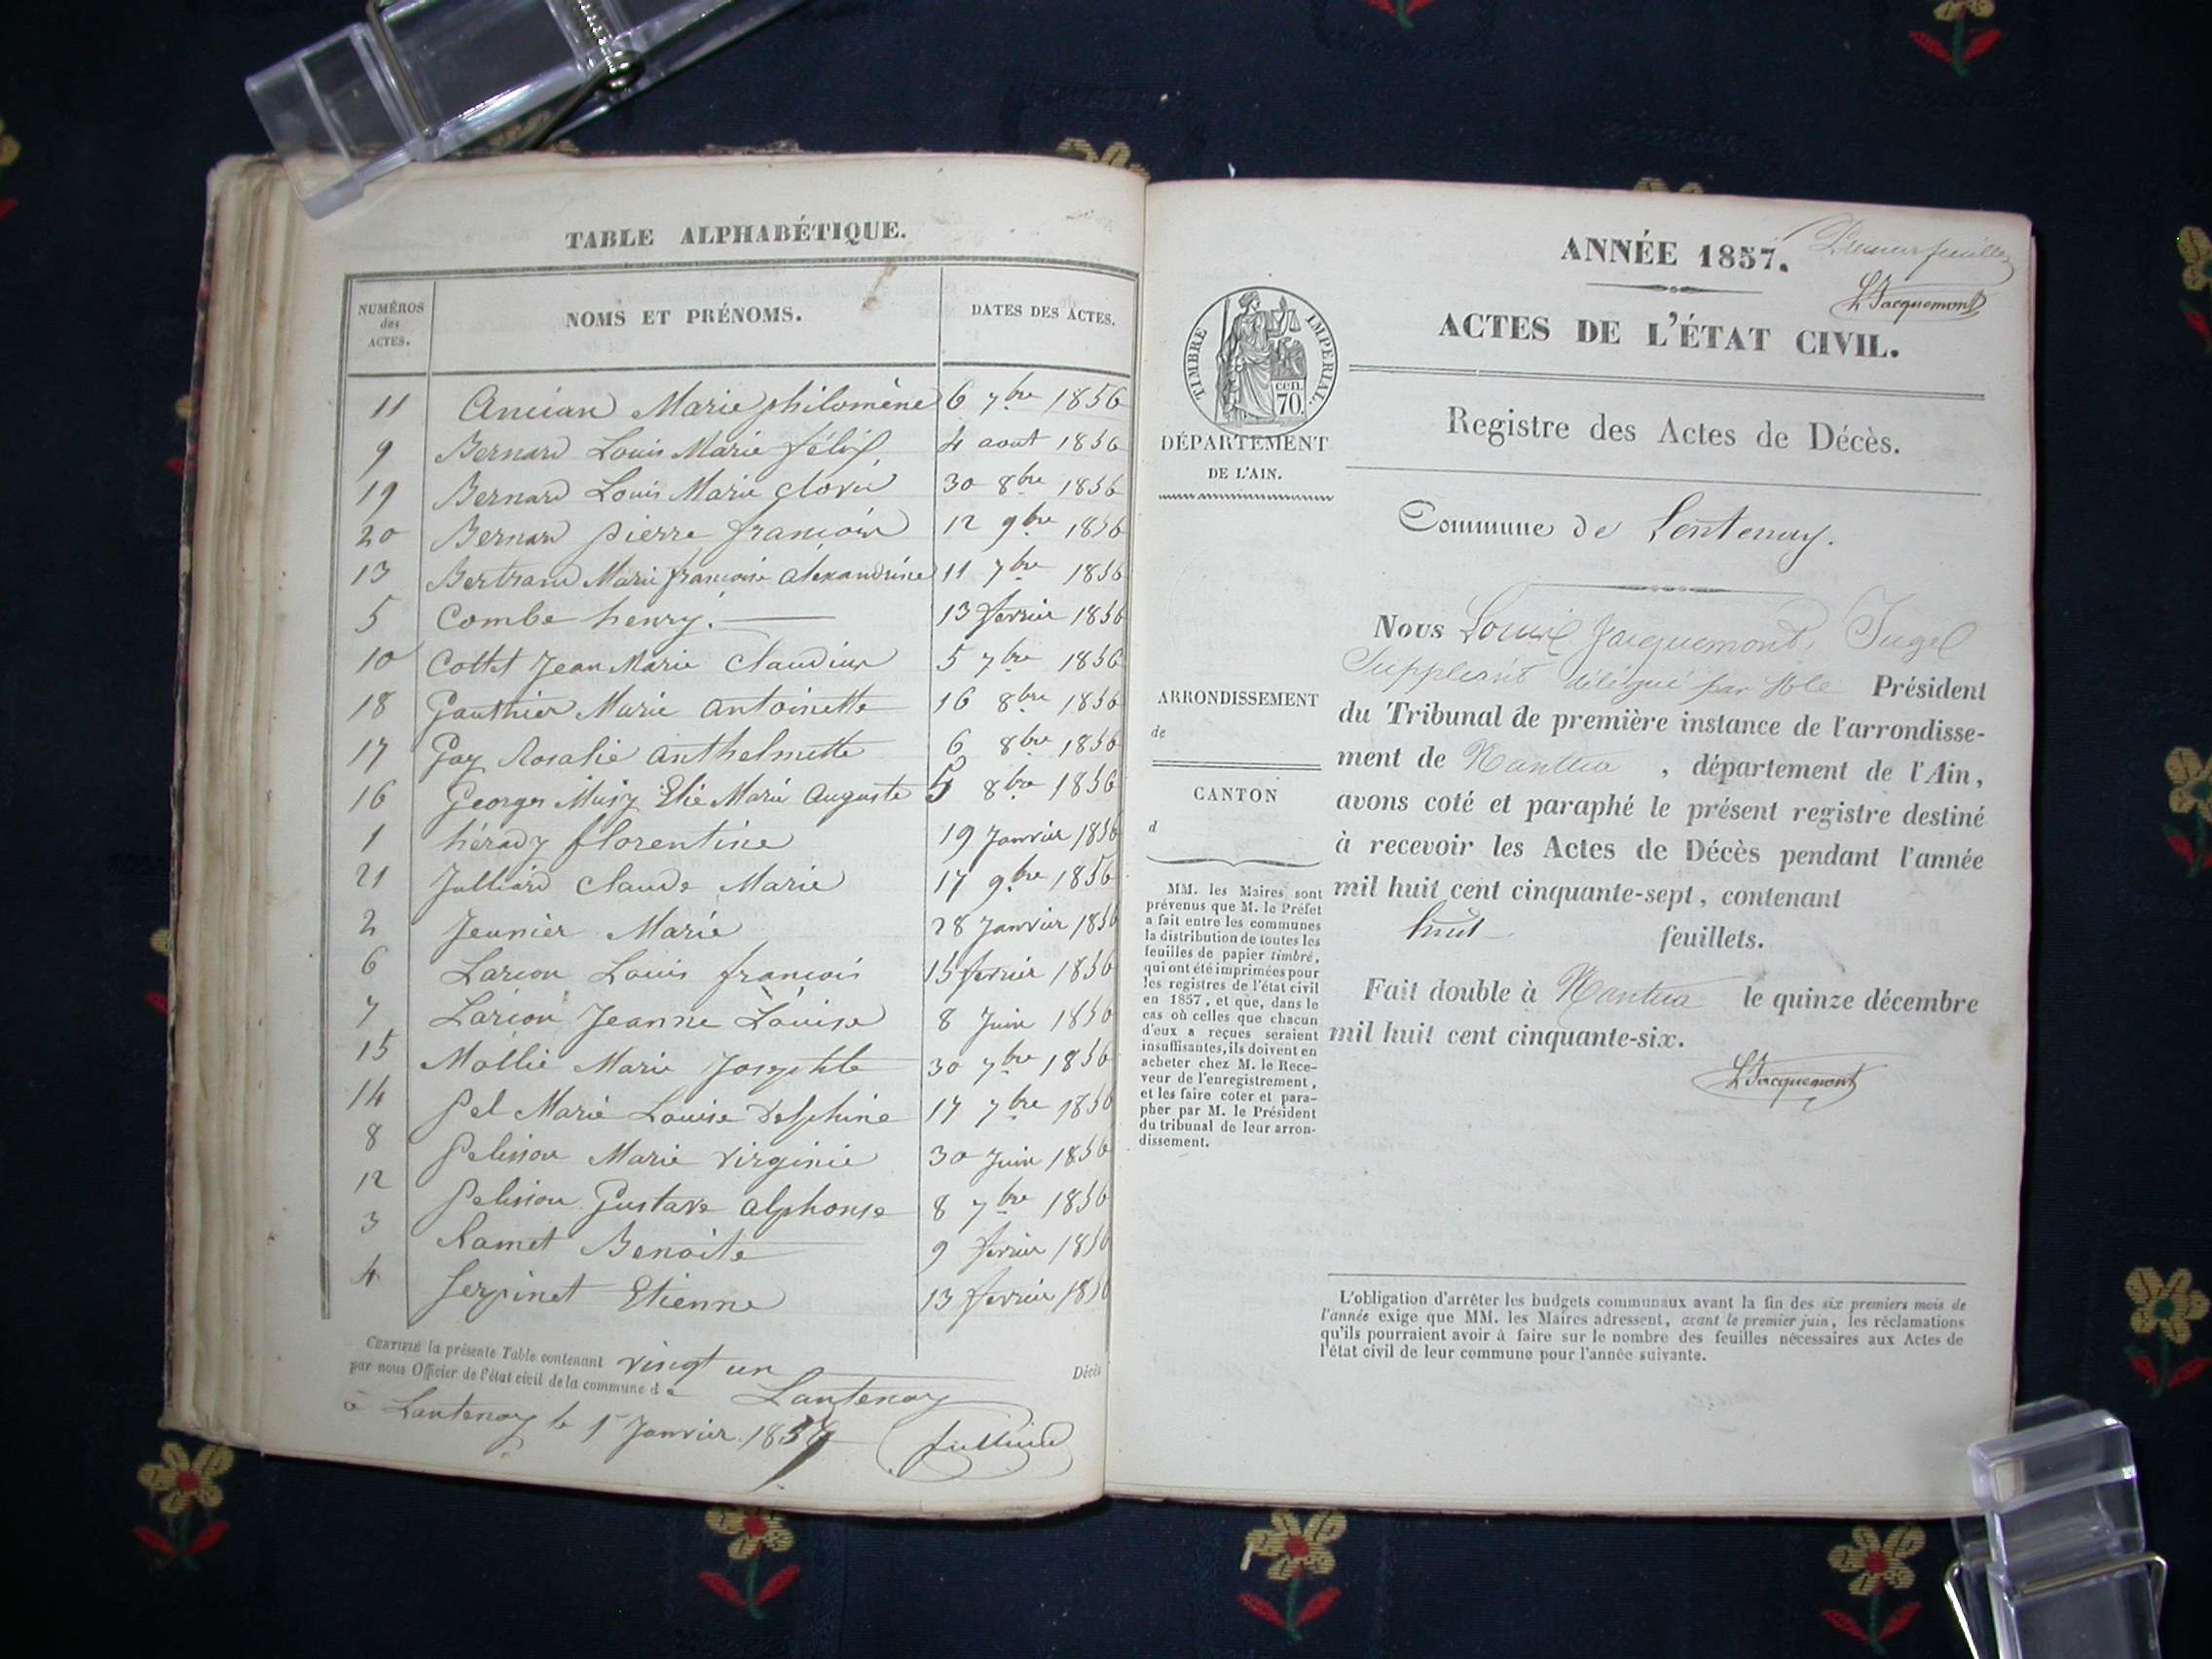 TABLE ALPHABÉTIQUE.
NUMÉROS des ACTES. NOMS ET PRÉNOMS. DATES DES ACTES.
11 Ancian Marie philomène 6 7bre 1856
9 Bernard Louis Marie félix 4 aout 1856
19 Bernard Louis Marie clovis 30 8bre 1856
20 Bernard pierre françois 12 9bre 1856
13 Bertrand Marie françoise alexandrine 11 7bre 1856
5 Combe henry. 13 fevrier 1856
10 Cottet Jean Marie Claudius 5 7bre 1856
18 Gauthier Marie antoinette 16 8bre 1856
17 Gay Rosalie anthelmette 6 8bre 1856
16 Georges Musy Elie Marie auguste 5 8bre 1856
1 hérady florentine 19 Janvier 1856
21 Julliard Claude Marie 17 9bre 1856
2 Jeunier Marie 28 Janvier 1856
6 Larcon Louis françois 15 fevrier 1856
7 Larcon Jeanne Louise 8 Juin 1856
15 Mollie Marie Josephte 30 7bre 1856
14 Pel Marie Louise Delphine 17 7bre 1856
8 Pelisson Marie Virginie 30 Juin 1856
12 Pelisson Gustave alphonse 8 7bre 1856
3 Ramet Benoite 9 fevrier 1856
4 Serpinet Etienne 13 fevrier 1856
CERTIFIÉ la présente Table contenant vingt un Décès
par nous Officier de l'état civil de la commune de Lantenay
à Lantenay le 1r Janvier 1857 Julliard
ANNÉE 1857. Premier feuillet
LJacquemont
ACTES DE L'ÉTAT CIVIL.
TIMBRE IMPERIAL
cen.
70.
DÉPARTEMENT
DE L'AIN.
Registre des Actes de Décès.
Commune de Lentenay.
ARRONDISSEMENT
de
CANTON
d
MM. les Maires sont
prévenus que M. le Préfet
a fait entre les communes
la distribution de toutes les
feuilles de papier timbré,
qui ont été imprimées pour
les registres de l'état civil
en 1857, et que, dans le
cas où celles que chacun
d'eux a reçues seraient
insuffisantes, ils doivent en
acheter chez M. le Rece-
veur de l'enregistrement,
et les faire coter et para-
pher par M. le Président
du tribunal de leur arron-
dissement.
Nous Louis Jacquemont, Juge
Suppléant délégué par Mr le Président
du Tribunal de première instance de l'arrondisse-
ment de Nantua, département de l'Ain,
avons coté et paraphé le présent registre destiné
à recevoir les Actes de Décès pendant l'année
mil huit cent cinquante-sept, contenant
huit feuillets.
Fait double à Nantua le quinze décembre
mil huit cent cinquante-six.
LJacquemont
L'obligation d'arrêter les budgets communaux avant la fin des six premiers mois de
l'année exige que MM. les Maires adressent, avant le premier juin, les réclamations
qu'ils pourraient avoir à faire sur le nombre des feuilles nécessaires aux Actes de
l'état civil de leur commune pour l'année suivante.